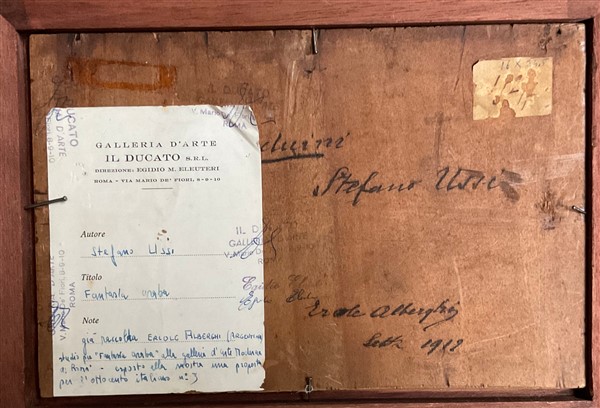 DUCATO
D'ARTE
8-9-10
V. Mario
ROMA
GALLERIA D'ARTE
IL DUCATO S.R.L.
DIREZIONE: EGIDIO M. ELEUTERI
ROMA - VIA MARIO DE' FIORI, 8-9-10
Autore
Stefano Ussi
Titolo
Fantasia araba
Note
già raccolta ERCOLE ALBERGHI
studio per "Fantasia araba" alla galleria d'arte Moderna
di Roma - esposto alla mostra una proposta
per l'ottocento italiano n° 3
IL D
GALL
ROMA
Stefano Ussi
Ercole Alberghi
1912